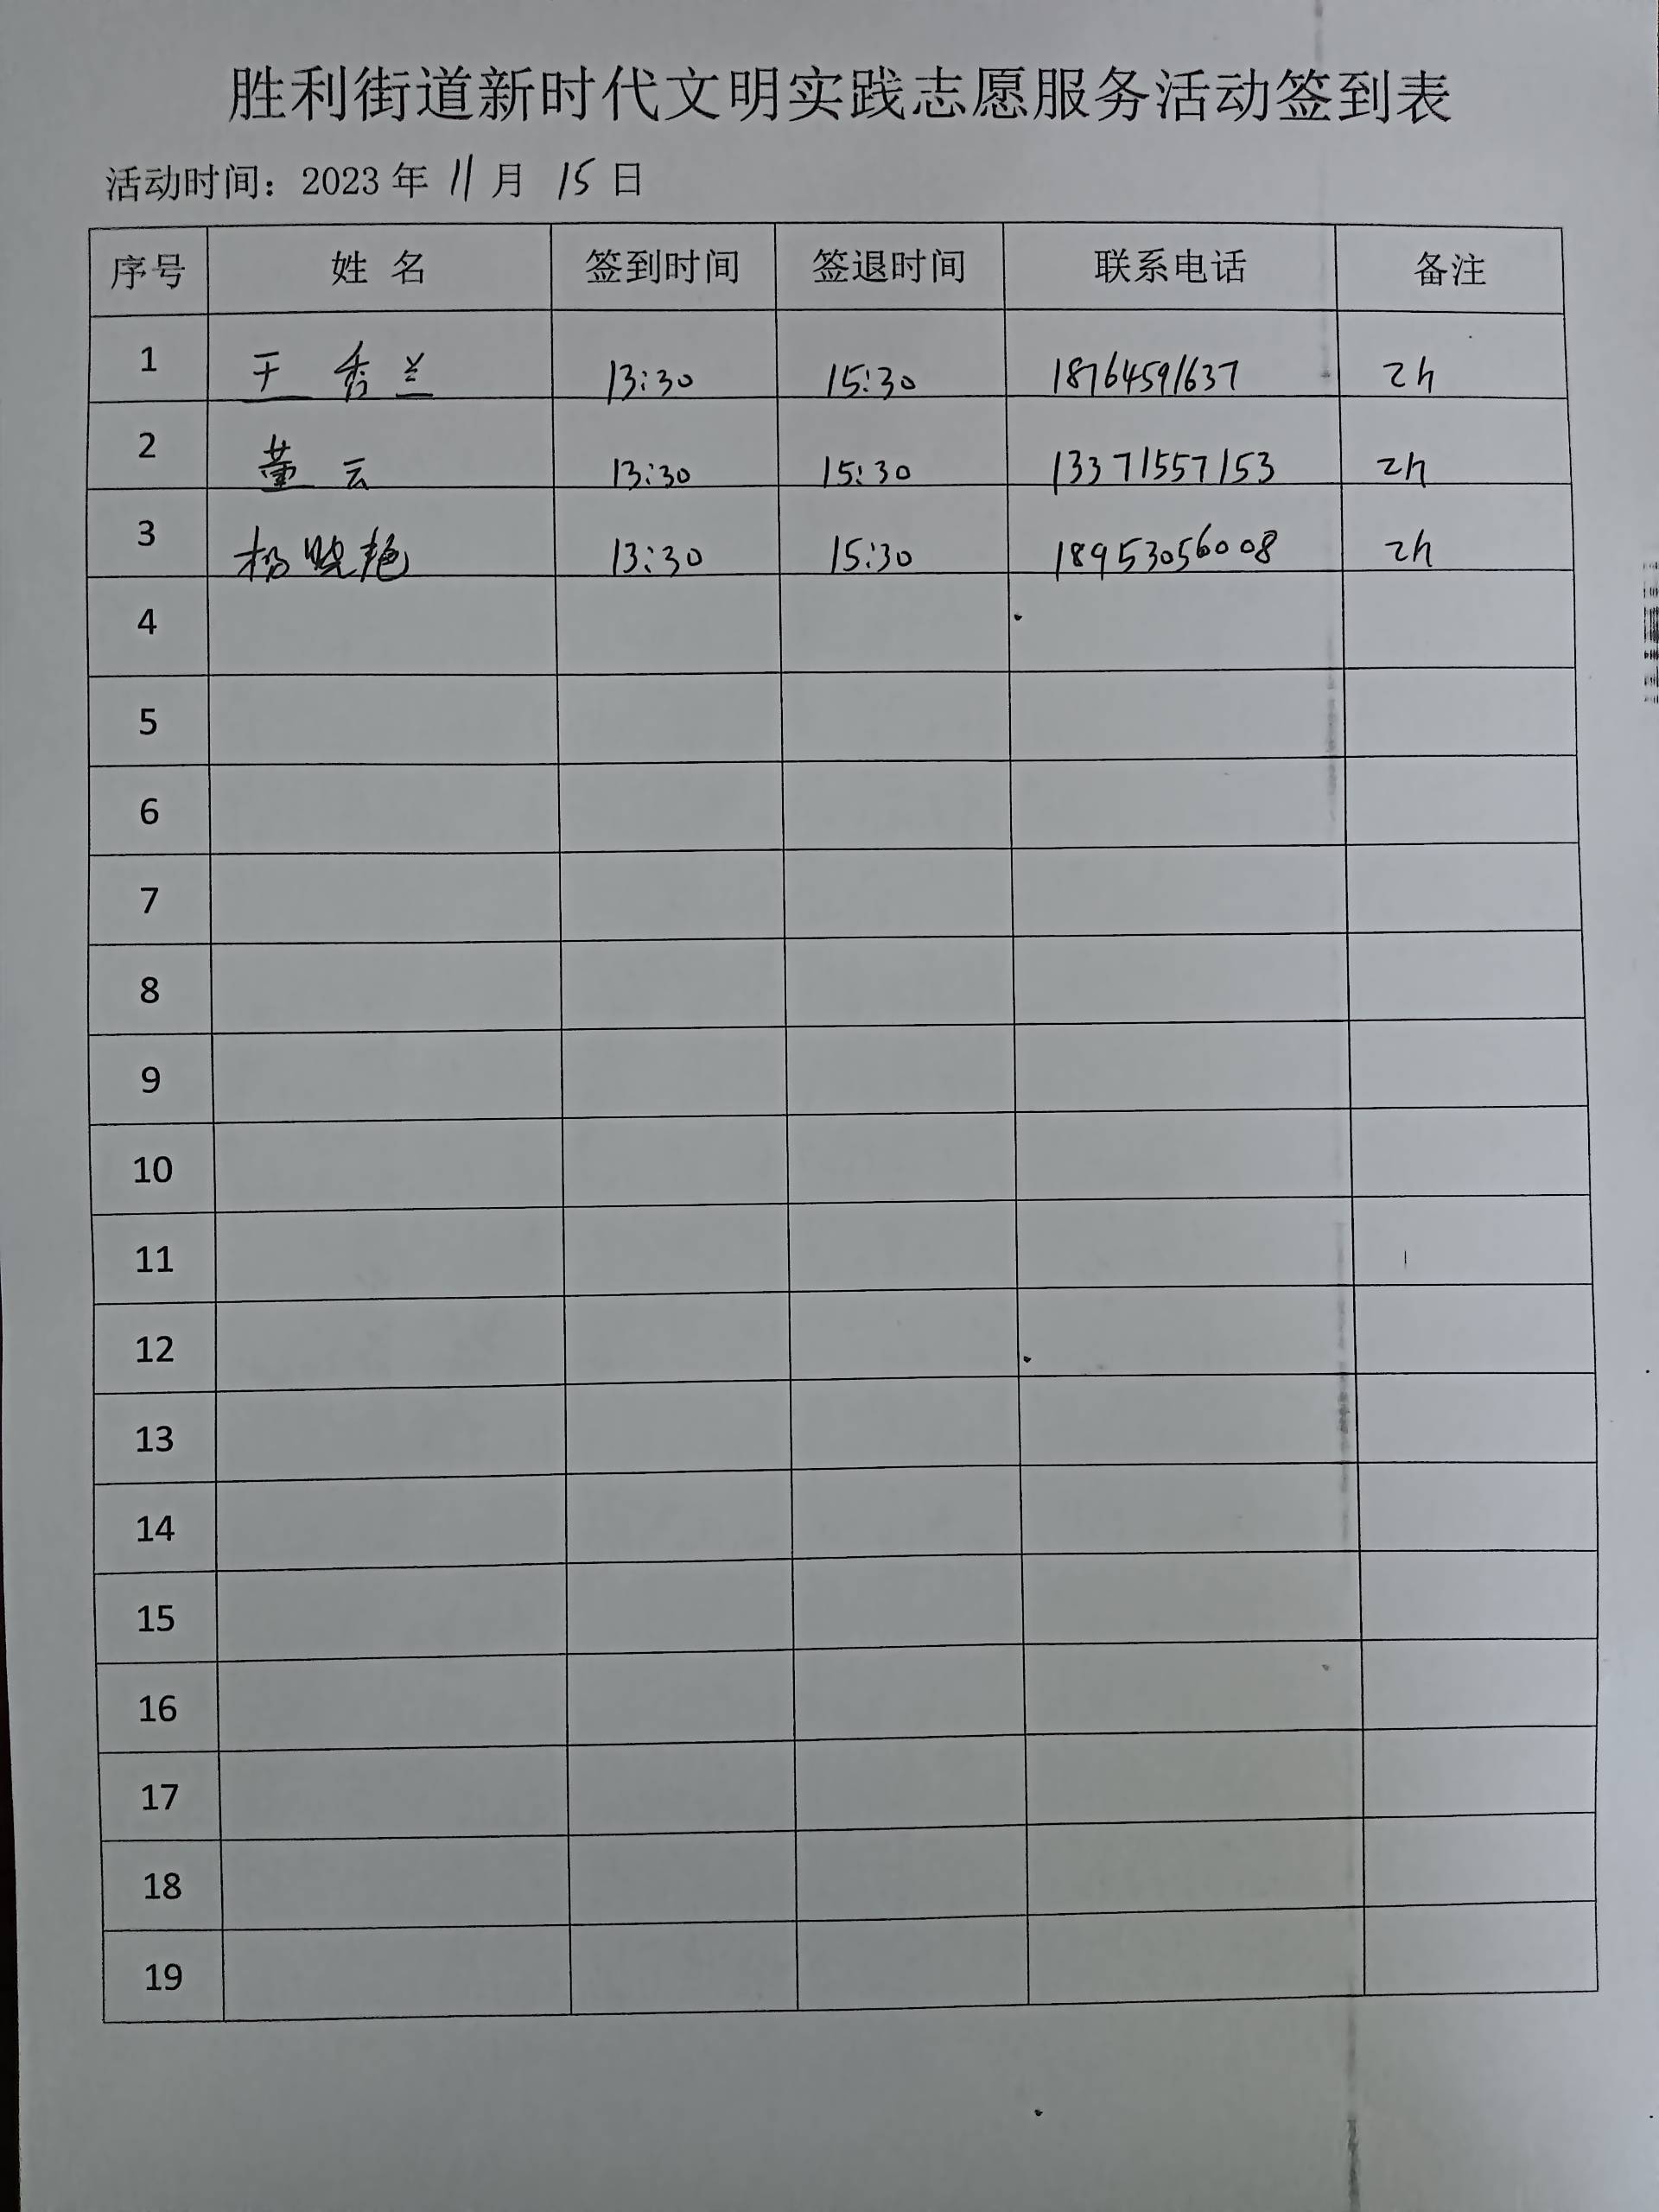 胜利街道新时代文明实践志愿服务活动签到表
活动时间：2023 年 11 月 15 日
序号 姓 名 签到时间 签退时间 联系电话 备注
1 王秀兰 13:30 15:30 18764591637 2h
2 董云 13:30 15:30 13371557153 2h
3 杨晓艳 13:30 15:30 18953056008 2h
4
5
6
7
8
9
10
11
12
13
14
15
16
17
18
19